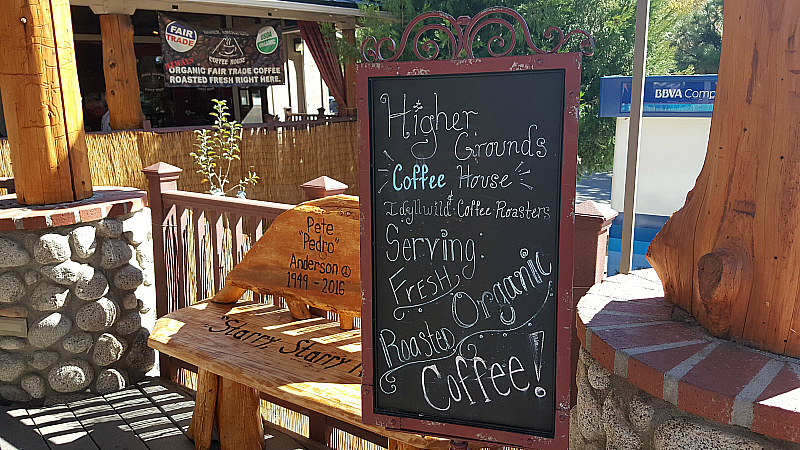 FAIR TRADE
COFFEE HOUSE
ORGANIC FAIR TRADE COFFEE
ROASTED FRESH RIGHT HERE.
BBVA Comp
Higher
Grounds
Coffee House
&
Idyllwild Coffee Roasters
Serving:
FRESH
Organic
Roasted
Coffee!
Pete
"Pedro"
Anderson
1949 - 2016
Starry, Starry